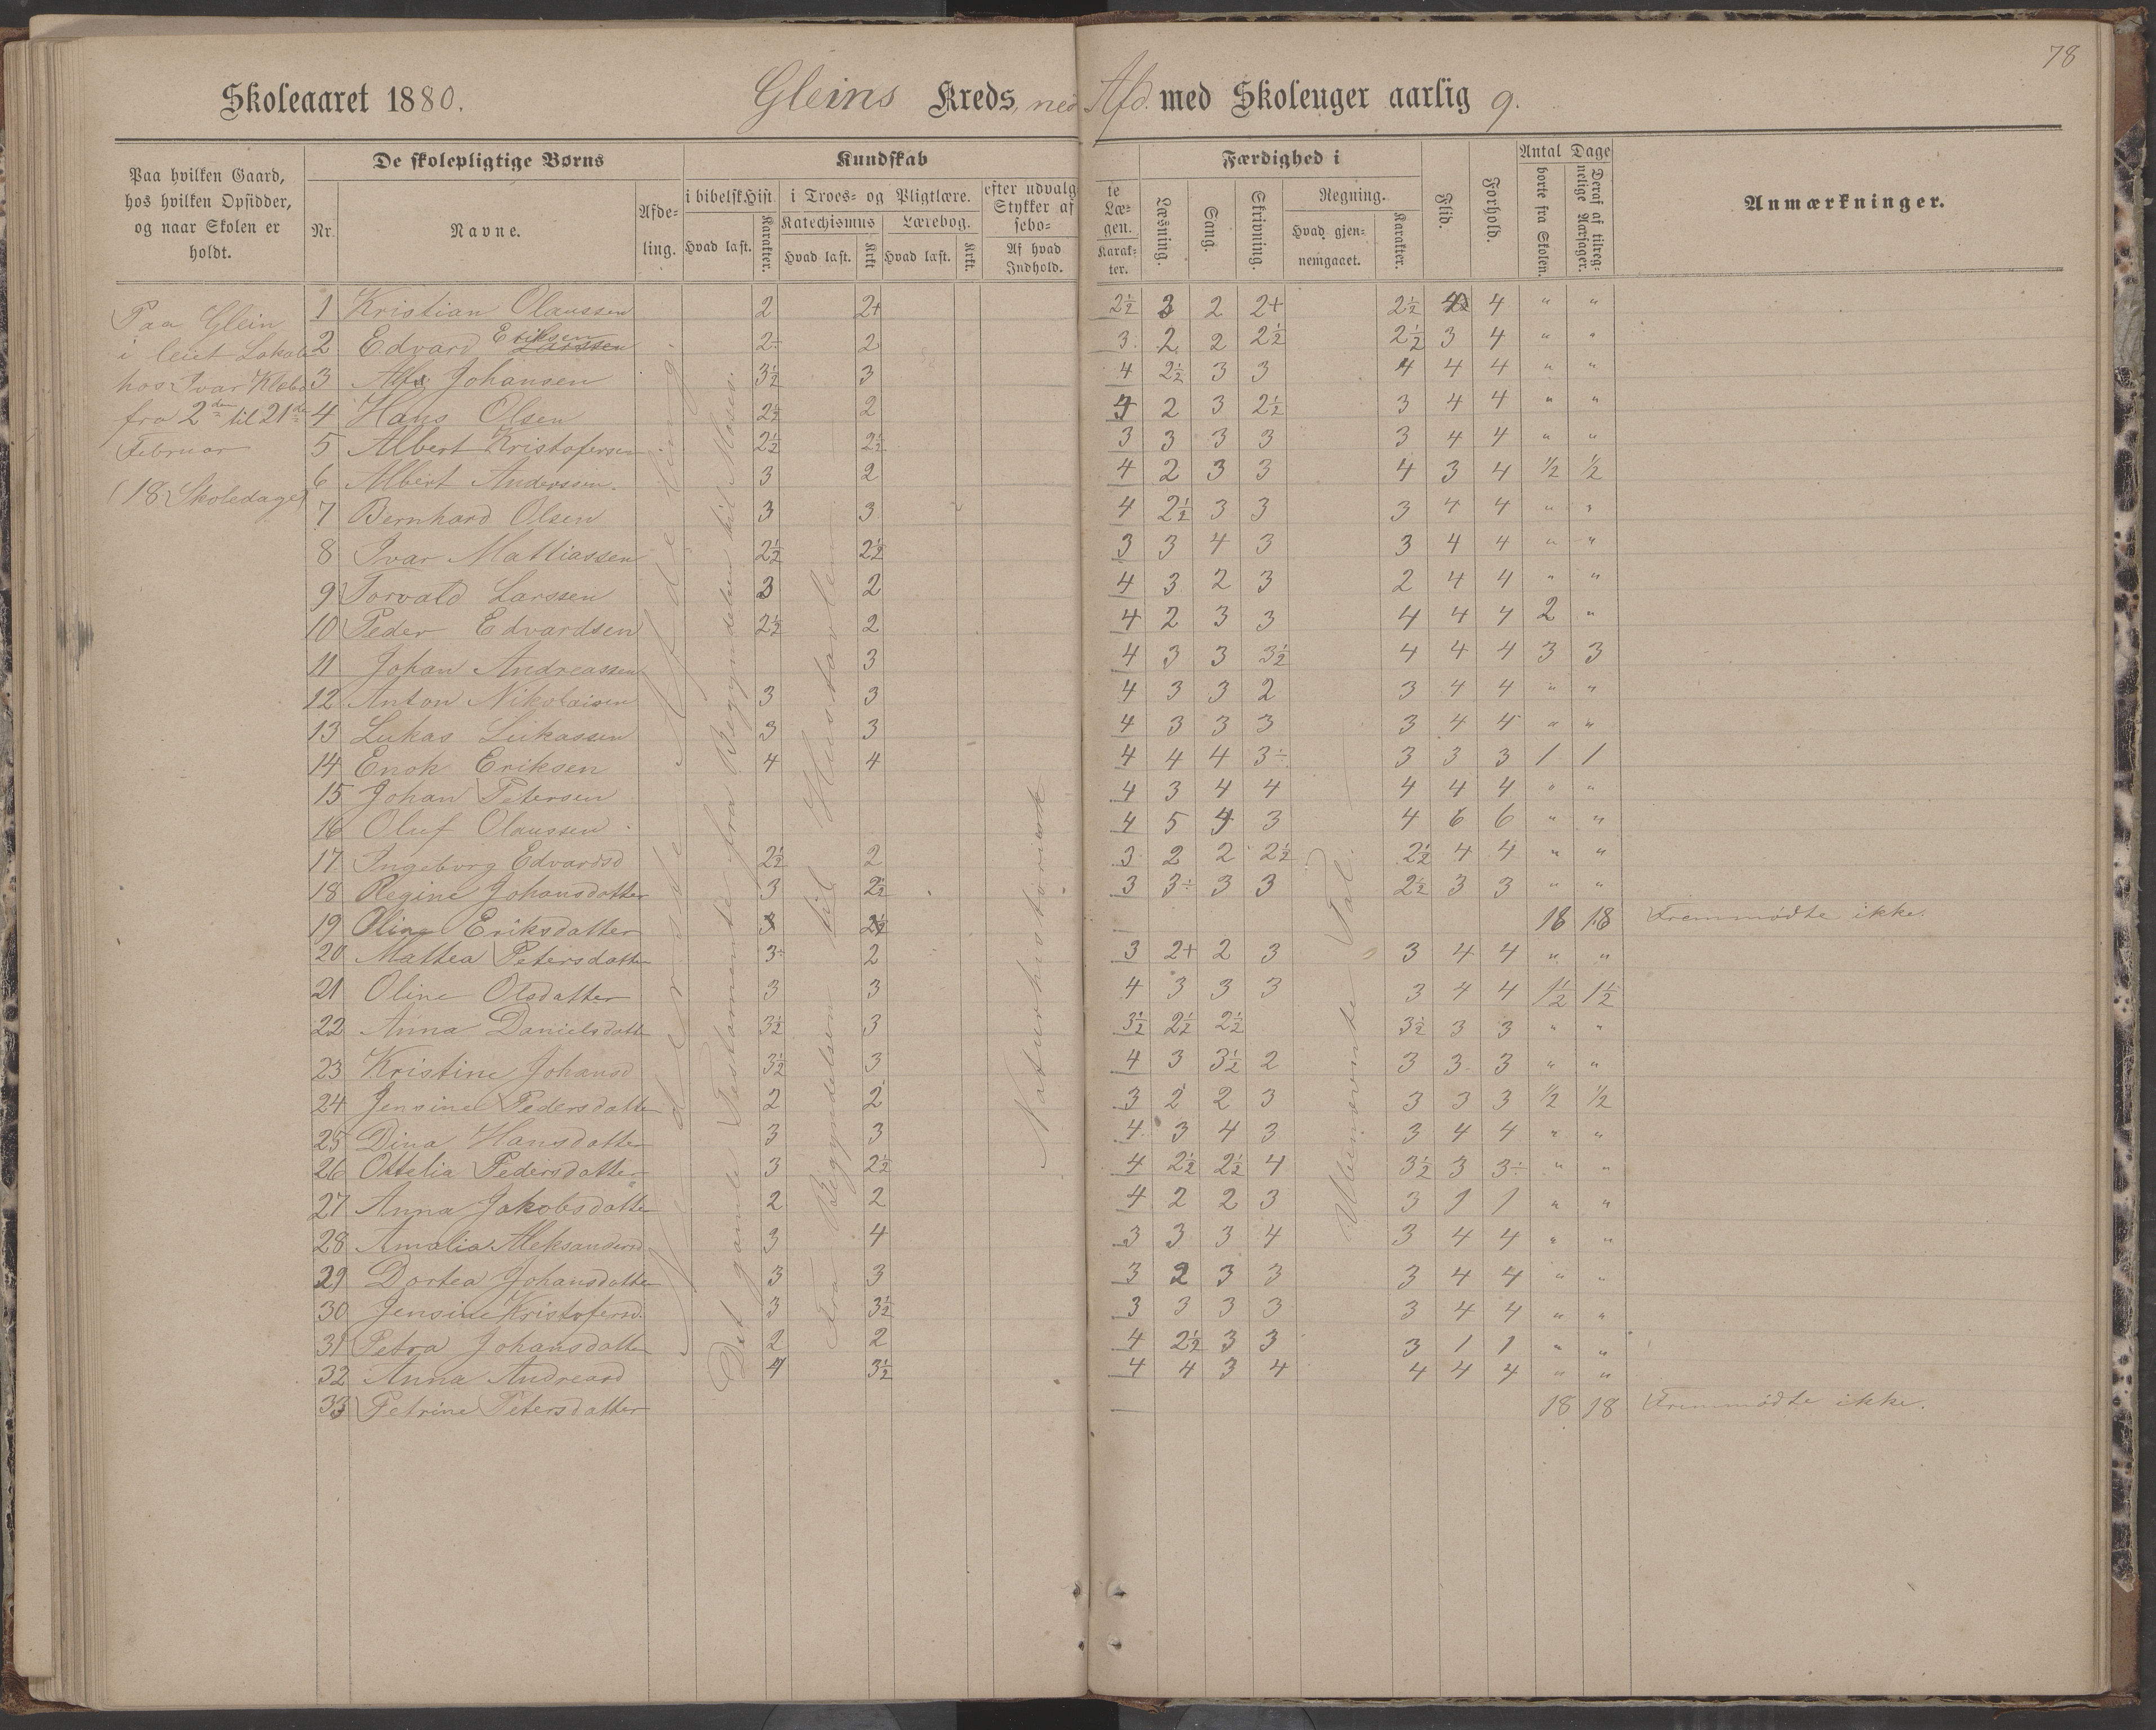 78
Skoleaaret 1880. Gleins Kreds, ned Afd. med Skoleuger aarlig 9.
Paa hvilken Gaard, hos hvilken Opsidder, og naar Skolen er holdt.
De skolepligtige Børns
Nr. Navne. Afdeling.
Kundskab
i bibelsk Hist i Troes- og Pligtlære. efter udvalgte Stykker af Læsebogen.
Hvad læst. Karakter. Katechismus Hvad læst. Krkt Lærebog. Hvad læst. Krkt. Af hvad Indhold. Karakter.
Færdighed i
Læsning. Sang. Skrivning. Regning. Hvad gjennemgaaet. Karakter.
Flid. Forhold.
Antal Dage
borte fra Skolen. Deraf af tilregnelige Aarsager.
Anmærkninger.
Paa Glein
i leiet Lokale
hos Ivar Klæbo
fra 2den til 21de
Februar
(18 Skoledage)
Nederste Afdeling.
Det gamle Testamente fra Begyndelsen til Moses.
Fra Begyndelsen til Hustavlen
Naturhistorisk
Ubenævnte Tal.
1 Kristian Olaussen 2 2+ 2½ 3 2 2+ 2½ 4 4 " "
2 Edvard Eriksen Larssen 2÷ 2 3 2 2 2½ 2½ 3 4 " "
3 Alf Johansen 3½ 3 4 2½ 3 3 4 4 4 " "
4 Hans Olsen 2½ 2 4 2 3 2½ 3 4 4 " "
5 Albert Kristofersen 2½ 2½ 3 3 3 3 3 4 4 " "
6 Albert Anderssen. 3 2 4 2 3 3 4 3 4 ½ ½
7 Bernhard Olsen 3 3 4 2½ 3 3 3 4 4 " "
8 Ivar Mattiassen 2½ 2½ 3 3 4 3 3 4 4 " "
9 Torvald Larssen 3 2 4 3 2 3 2 4 4 " "
10 Peder Edvardsen 2½ 2 4 2 3 3 4 4 4 2 "
11 Johan Andreassen 3 4 3 3 3½ 4 4 4 3 3
12 Anton Nikolaisen 3 3 4 3 3 2 3 4 4 " "
13 Lukas Lukassen 3 3 4 3 3 3 3 4 4 " "
14 Enok Eriksen 4 4 4 4 4 3÷ 3 3 3 1 1
15 Johan Petersen 4 3 4 4 4 4 4 " "
16 Oluf Olaussen 4 5 4 3 4 6 6 " "
17 Ingeborg Edvardsd 2½ 2 3 2 2 2½ 2½ 4 4 " "
18 Regine Johansdatter 3 2½ 3 3÷ 3 3 2½ 3 3 " "
19 Oline Eriksdatter 3 2½ 18 18 Fremmødte ikke.
20 Mattea Petersdatter 3÷ 2 3 2+ 2 3 3 4 4 " "
21 Oline Olsdatter 3 3 4 3 3 3 3 4 4 1½ 1½
22 Anna Danielsdatt 3½ 3 3½ 2½ 2½ 3½ 3 3 " "
23 Kristine Johansd 3½ 3 4 3 3½ 2 3 3 3 " "
24 Jensine Pedersdatte 2 2 3 2 2 3 3 3 3 ½ ½
25 Dina Hansdatter 3 3 4 3 4 3 3 4 4 " "
26 Ottelia Pedersdatter 3 2½ 4 2½ 2½ 4 3½ 3 3÷ " "
27 Anna Jakobsdatte 2 2 4 2 2 3 3 1 1 " "
28 Amalia Aleksandersd 3 4 3 3 3 4 3 4 4 " "
29 Dortea Johansdatter 3 3 3 2 3 3 3 4 4 " "
30 Jensine Kristofersd. 3 3½ 3 3 3 3 3 4 4 " "
31 Petra Johansdatte 2 2 4 2½ 3 3 3 1 1 " "
32 Anna Andreasd 4 3½ 4 4 3 4 4 4 4 " "
33 Petrine Petersdatter 18 18 Fremmødte ikke.